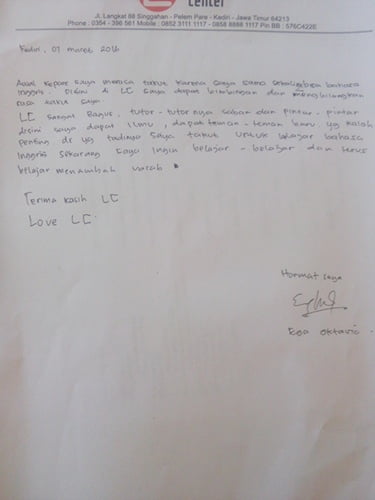 Center
Jl. Langkat 88 Singgahan - Pelem Pare - Kediri - Jawa Timur 64213
Phone : 0354 - 396 561 Mobile : 0852 3111 1117 - 0858 8888 1117 Pin BB : 576C422E
Kediri, 07 maret 2016
Awal kepare saya merasa takut karena saya buta sekali bahasa
Inggris. Disini di LC saya dapat bimbingan dan menghilangkan
rasa takut saya.
LC sangat Bagus, tutor - tutornya sabar dan pintar - pintar
disini saya dapat ilmu, dapat teman - teman baru yg
penting dr yg tadinya saya takut untuk belajar bahasa
Inggris sekarang saya ingin belajar - belajar dan terus
belajar menambah vocab.
Terima kasih LC
Love LC
Hormat saya
Oktavia